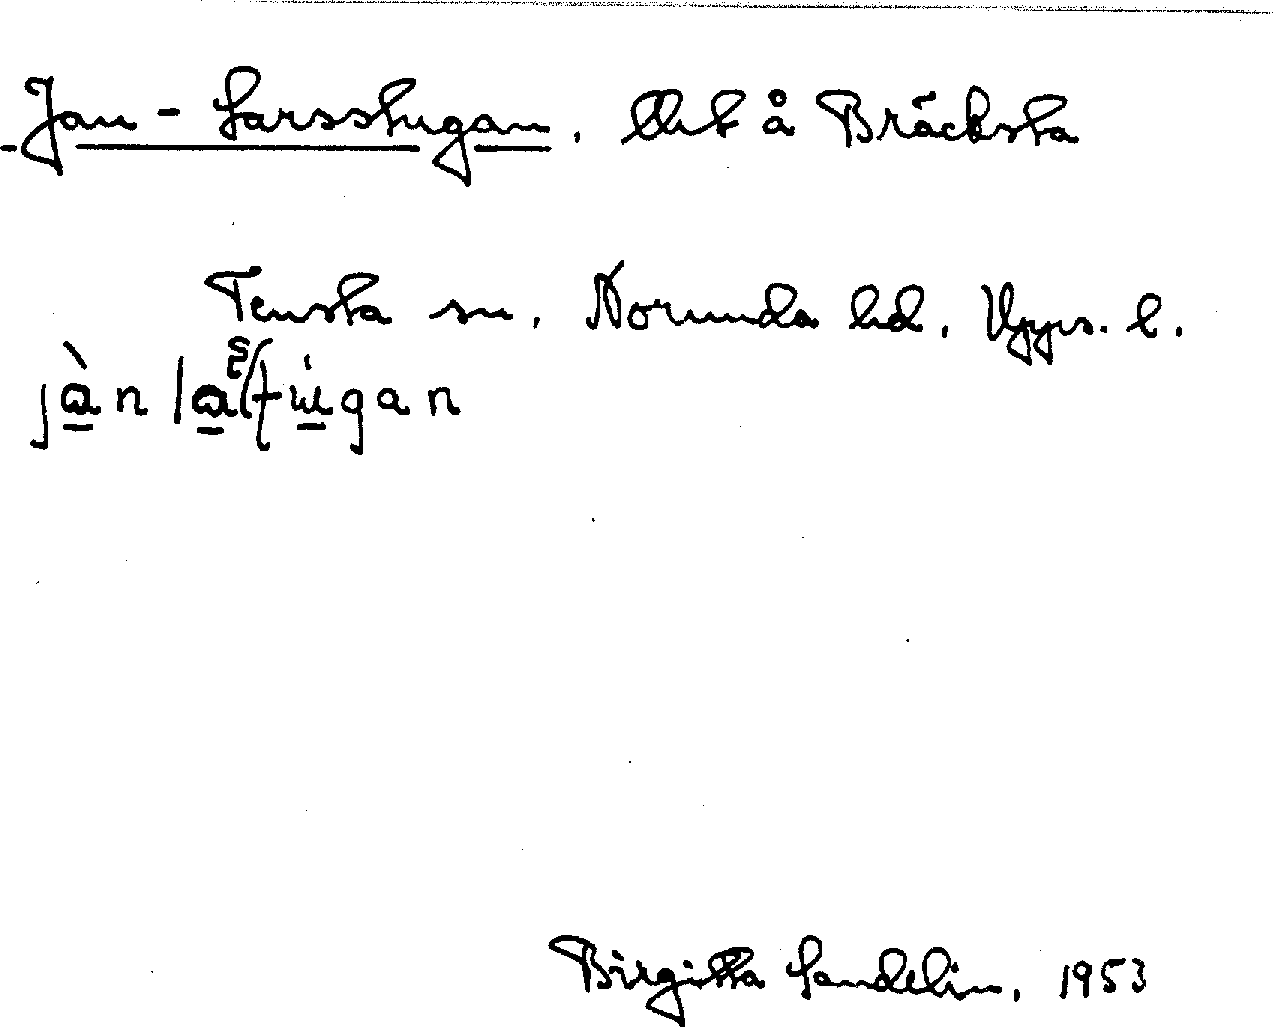 Jan-Larsstugan. Det å Bräcksta
Tensta sn. Norunda hd. Upps. l.
Birgitta Sandelin, 1953